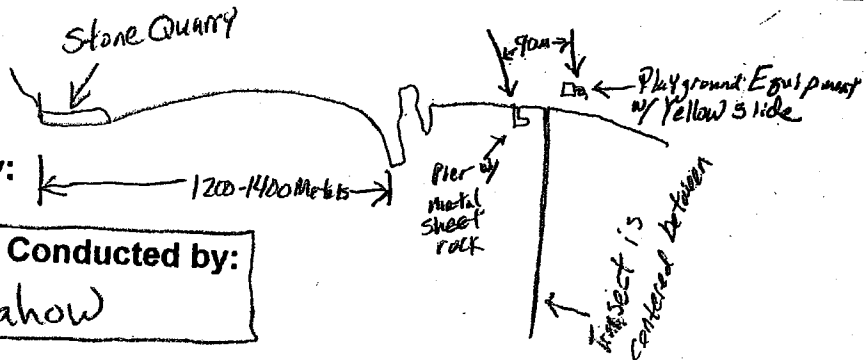 Stone Quarry
90m
Playground Equipment
w/ Yellow slide
y:
1200-1400 Meters
Pier w/
metal
sheet
rock
Conducted by:
ahow
is
centered between